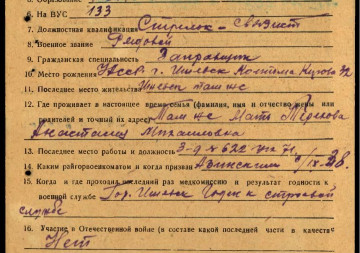 6. На ВУС 133
7. Должностная квалификация Стрелок-связист
8. Военное звание Рядовой
9. Гражданская специальность
10. Место рождения г. Ижевск
11. Последнее место жительства там же
12. Где проживает в настоящее время семья (фамилия, имя и отчество жены или
родителей и точный их адрес) Там же Мать
Анастасия Михайловна
13. Последнее место работы и должность 3-д № 622
14. Каким райгорвоенкоматом и когда призван
15. Когда и где проходил последний раз медкомиссию и результат годности к
военной службе Ижевск Годен к строевой
службе
16. Участие в Отечественной войне (в составе какой последней части в качестве
Нет